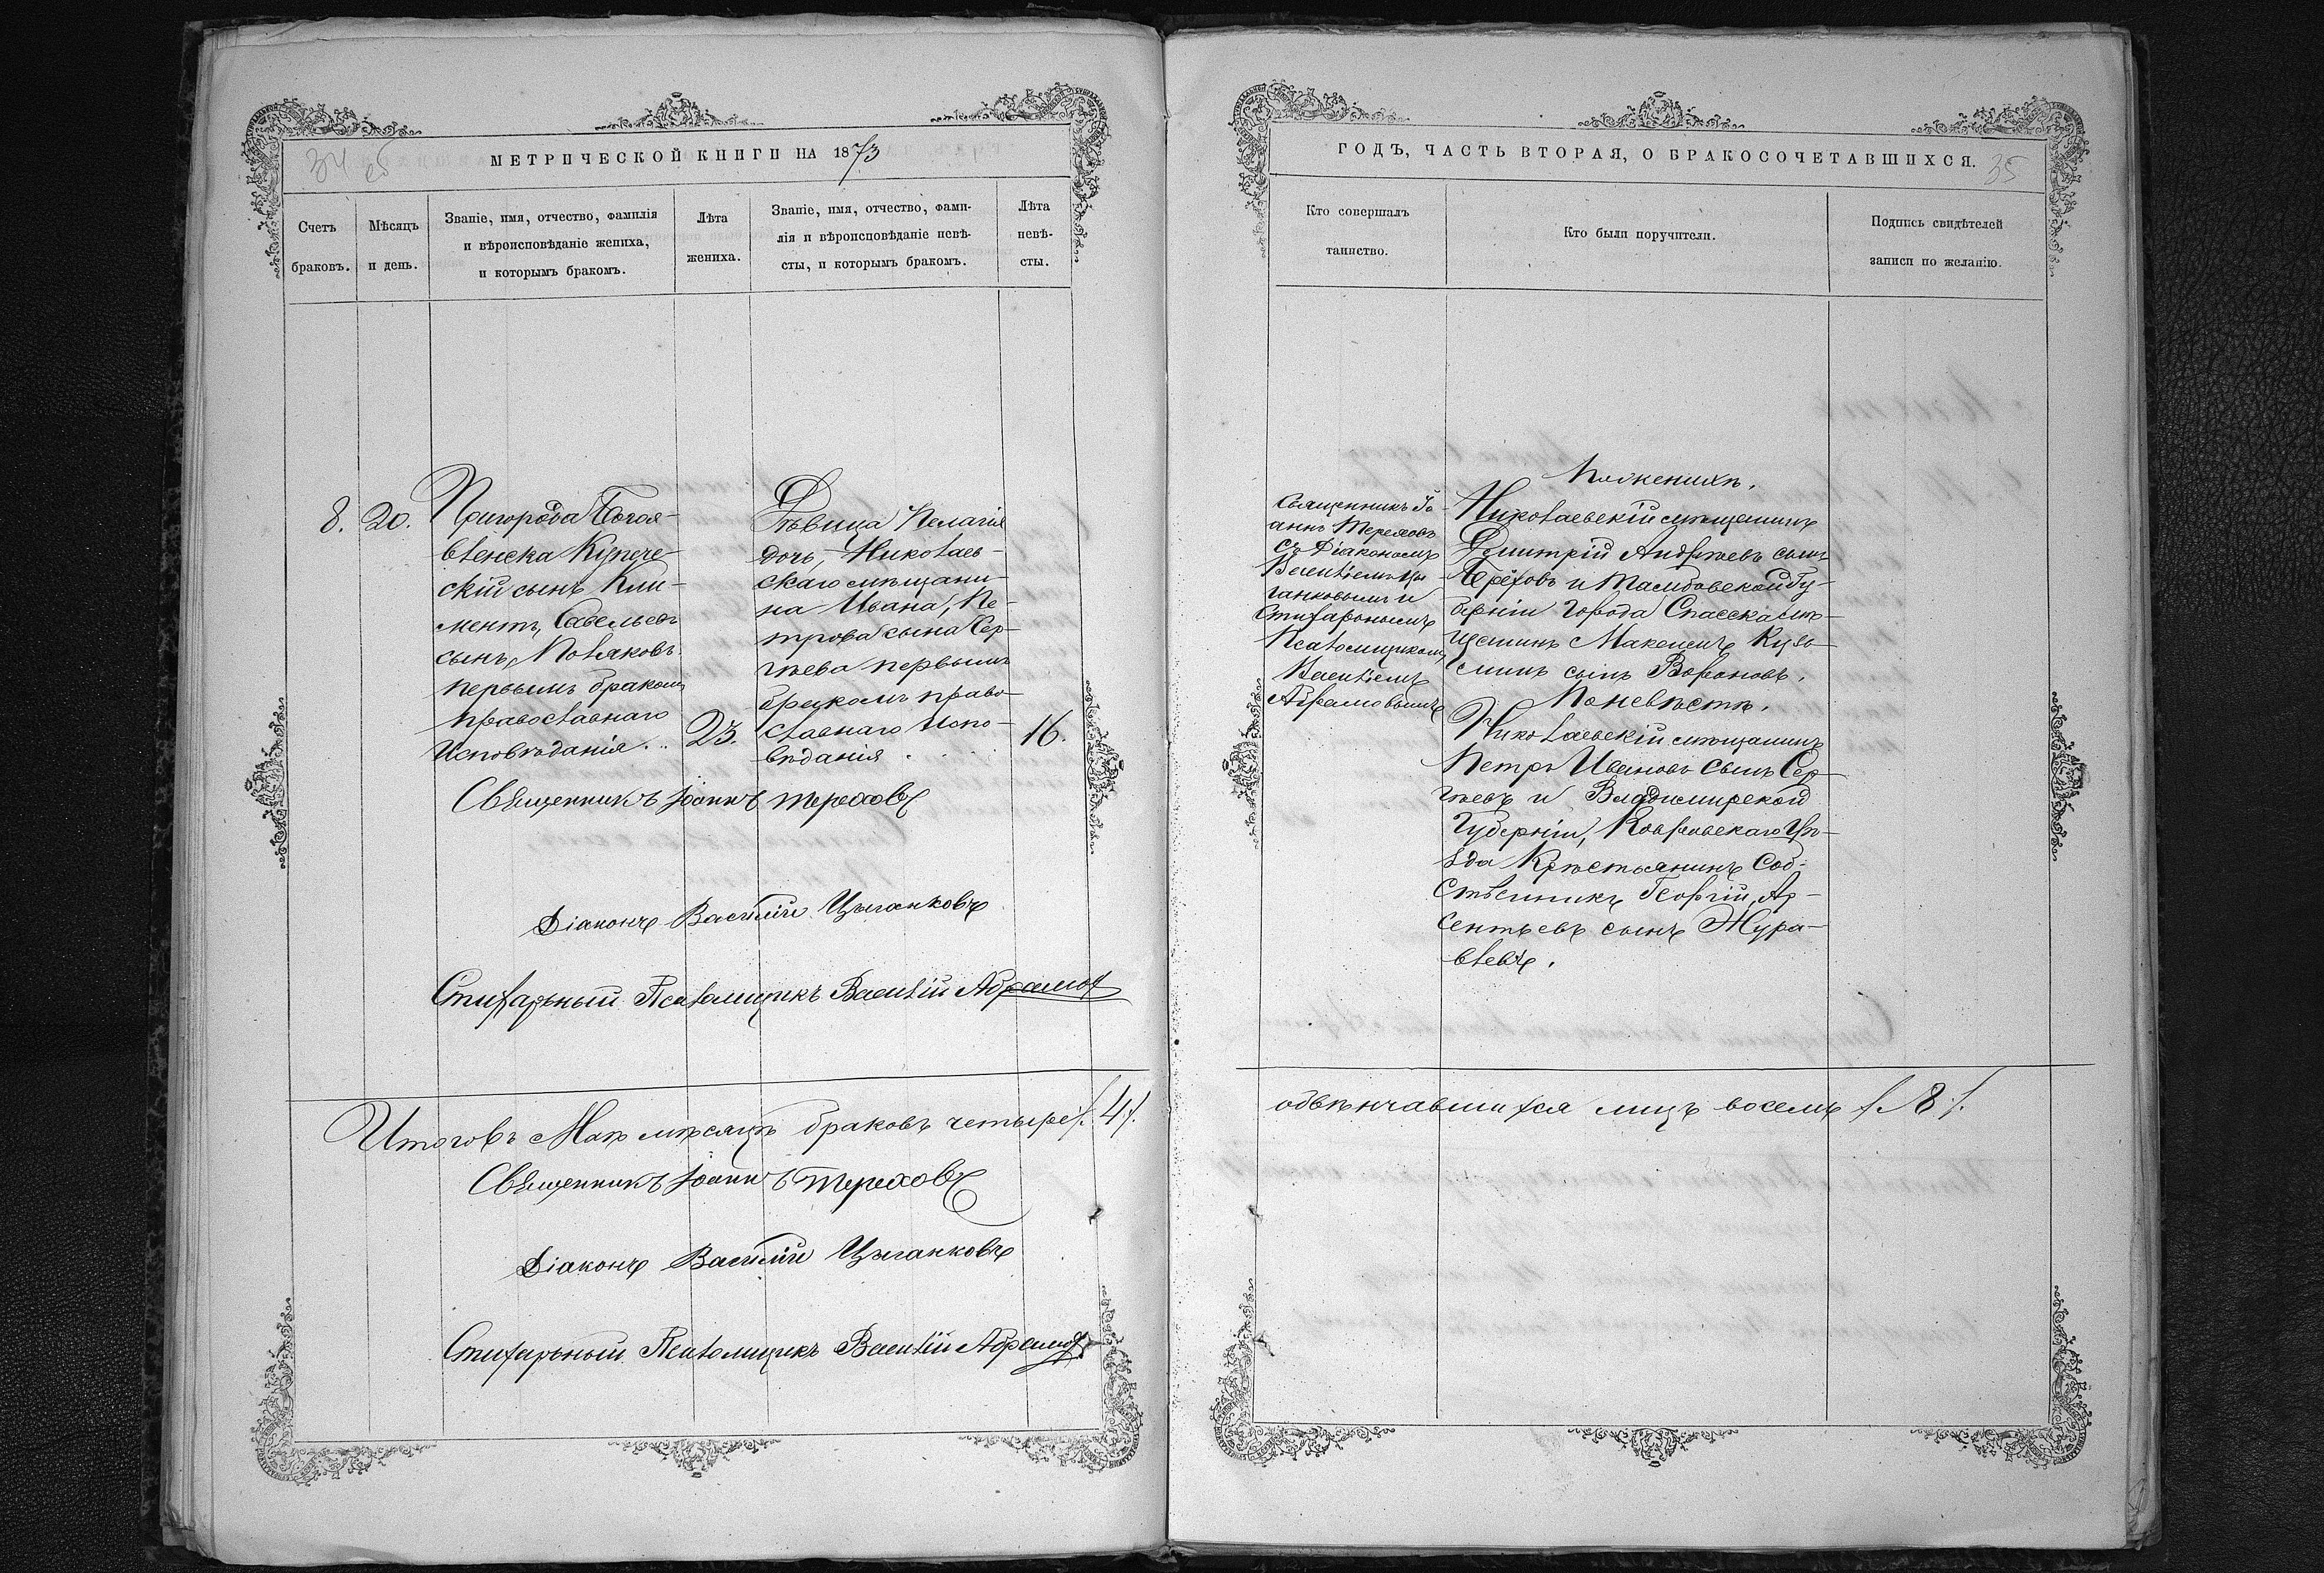 34 об
МЕТРИЧЕСКОЙ КНИГИ НА 1873
Счетъ
браковъ.
Мѣсяцъ
и день.
Званіе, имя, отчество, фамилія
и вѣроисповѣданіе жениха,
и которымъ бракомъ.
Лѣта
жениха.
Званіе, имя, отчество, фами-
лія и вѣроисповѣданіе невѣ-
сты, и которымъ бракомъ.
Лѣта
невѣ-
сты.
8.
20.
Пригорода Богоя-
вленска Купече-
скій сынъ Кли-
ментъ, Савельевъ
сынъ, Поляковъ
первымъ бракомъ
православнаго
Исповѣданія..
23.
Дѣвица Пелагія
дочь, Николаев-
скаго мѣщани-
на Ивана, Пе-
трова сына Сер-
гѣева первымъ
бракомъ право-
славнаго испо-
вѣданія .
16.
Священникъ Іоаннъ Тереховъ
Діаконъ Василій Цыганковъ
Стихарный Псаломщикъ Василій Абрамов
Итоговъ Маѣ мѣсяцѣ браковъ четыре /.4/.
Священникъ Іоаннъ Тереховъ
Діаконъ Василій Цыганковъ
Стихарный Псаломщикъ Василій Абрамов
ГОДЪ, ЧАСТЬ ВТОРАЯ, О БРАКОСОЧЕТАВШИХСЯ.
35
Кто совершалъ
таинство.
Кто были поручители.
Подпись свидѣтелей
записи по желанію.
Священникъ Іо-
аннъ Тереховъ
съ Діакономъ
Василіемъ Цы-
ганковымъ и
Стихарнымъ
Псаломщикомъ
Василіемъ
Абрамовымъ
По женихѣ.
Николаевскій мѣщанинъ
Димитрій Андрѣевъ сынъ
Тереховъ и Тамбовской Гу-
берніи города Спасска мѣ-
щанинъ Максимъ Кузь-
минъ сынъ Вороновъ.
По невѣстѣ.
Николаевскій мѣщанинъ
Петръ Ивановъ сынъ Сер-
гѣевъ и Владимирской
Губерніи, Ковровскаго Уѣ-
зда Крестьянинъ Соб-
ственникъ Георгій, Ар-
сентьевъ сынъ Жура-
влевъ.
обвѣнчавшихся лицъ восемь /.8/.